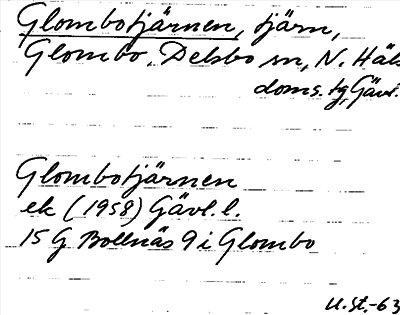 Glombotjärnen, tjärn,
Glombo, Delsbo sn, N. Häls.
doms. tg, Gävl.
Glombotjärnen
ek (1958) Gävl. l.
15 G Bollnäs 9 i Glombo
U. St. -63